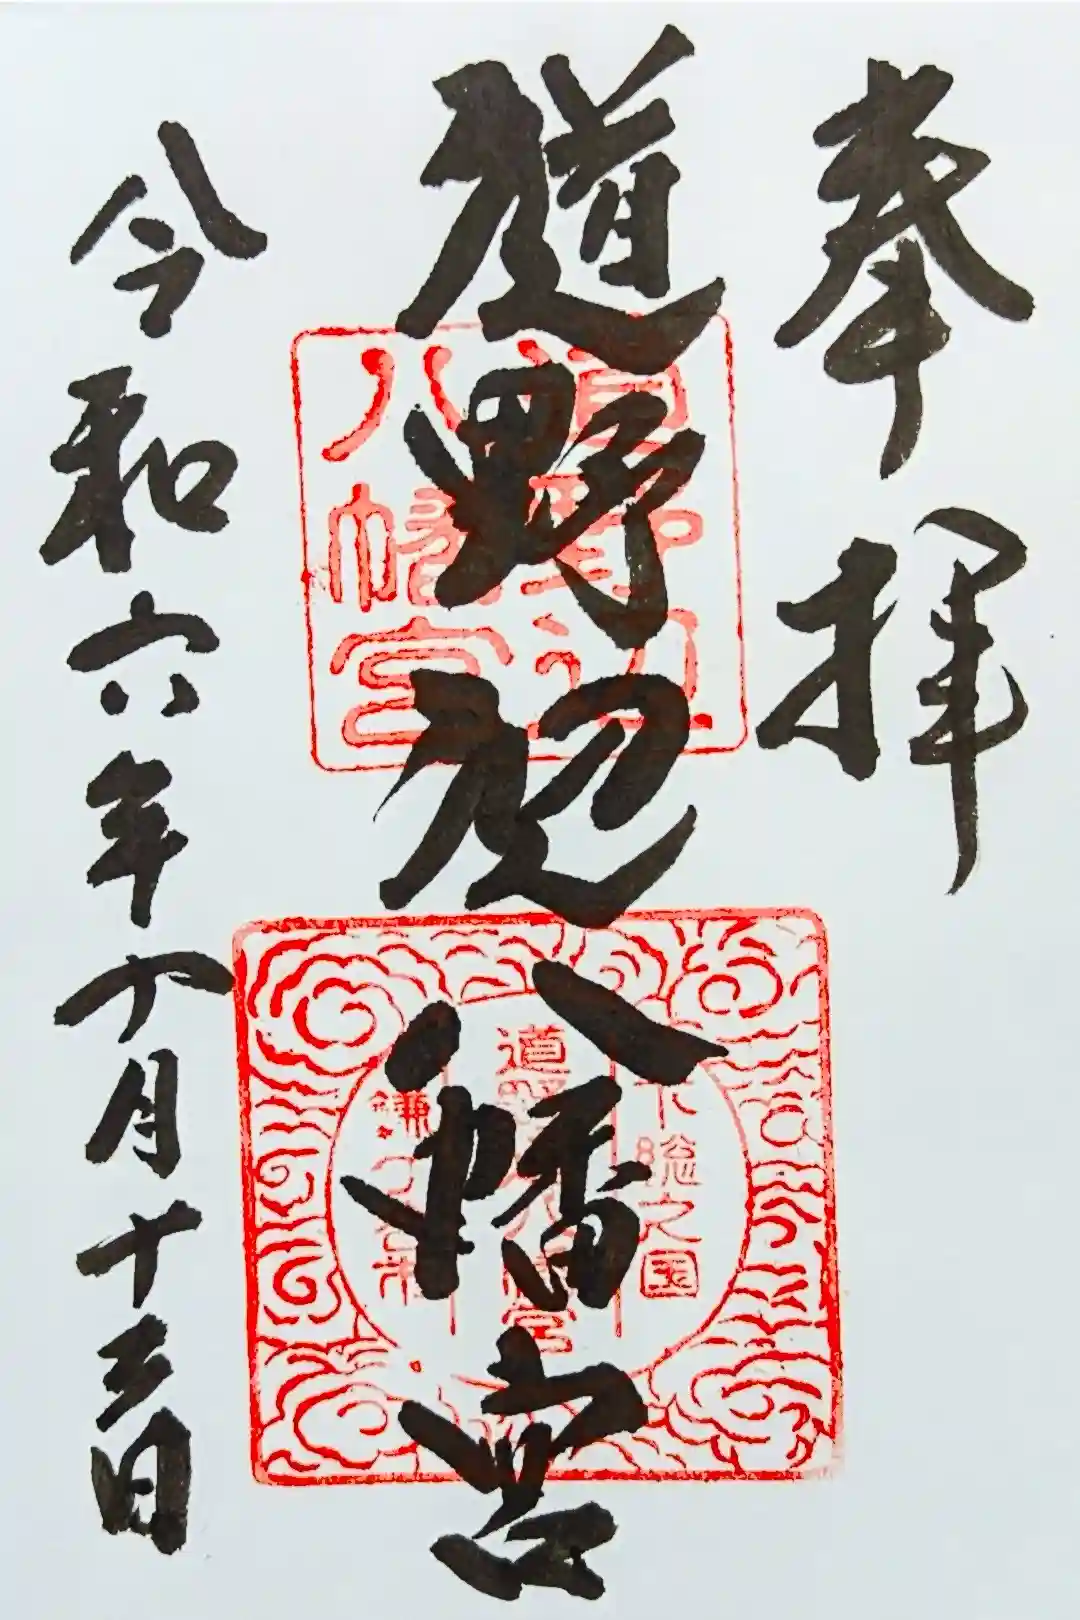 奉拝
道野辺八幡宮
令和六年十月十三日
道野辺
八幡宮
下総之国
道野辺八幡宮
鎌ヶ谷市